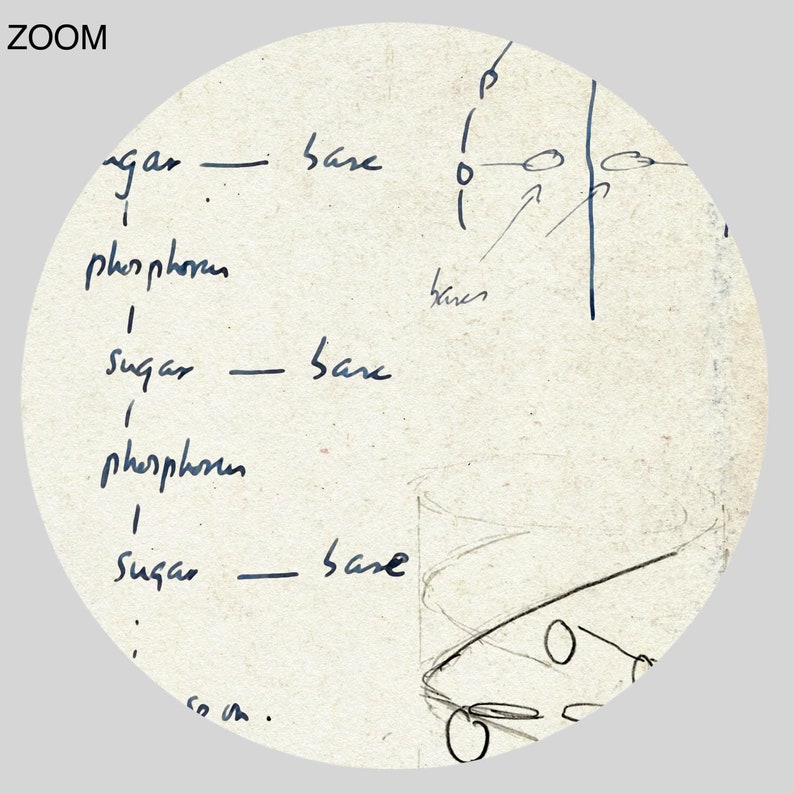 ZOOM
ugar — base
phosphorus
sugar — base
phosphorus
sugar — base
so on.
bases